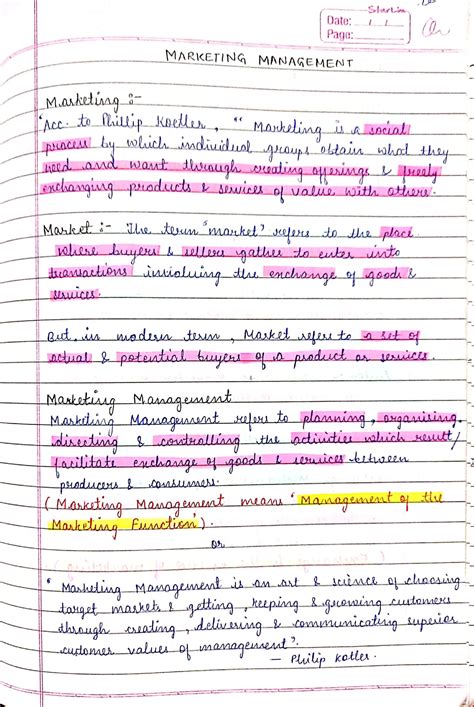 Date: / /
Page:
MARKETING MANAGEMENT
Marketing :-
"Acc. to Phillip Koetler, " Marketing is a social
process by which individual groups obtain what they
need and want through creating offerings & freely
exchanging products & services of value with others.
Market :- The term "market' refers to the place
where buyers & sellers gather to enter into
transactions involving the exchange of goods &
services.
But, in modern term, Market refers to a set of
actual & potential buyers of a product or services.
Marketing Management
Marketing Management refers to planning, organising,
directing & controlling the activities which result/
facilitate exchange of goods & services between
producers & consumers.
( Marketing Management means 'Management of the
Marketing Function').
or
" Marketing Management is an art & science of choosing
target markets & getting, keeping & growing customers
through creating, delivering & communicating superior
customer values of management".
— Philip Kotler.